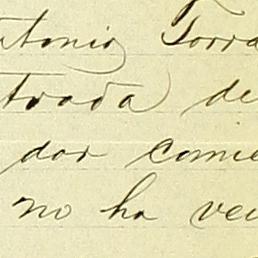 ntonio Torra
trada de
dar comie
no ha ve